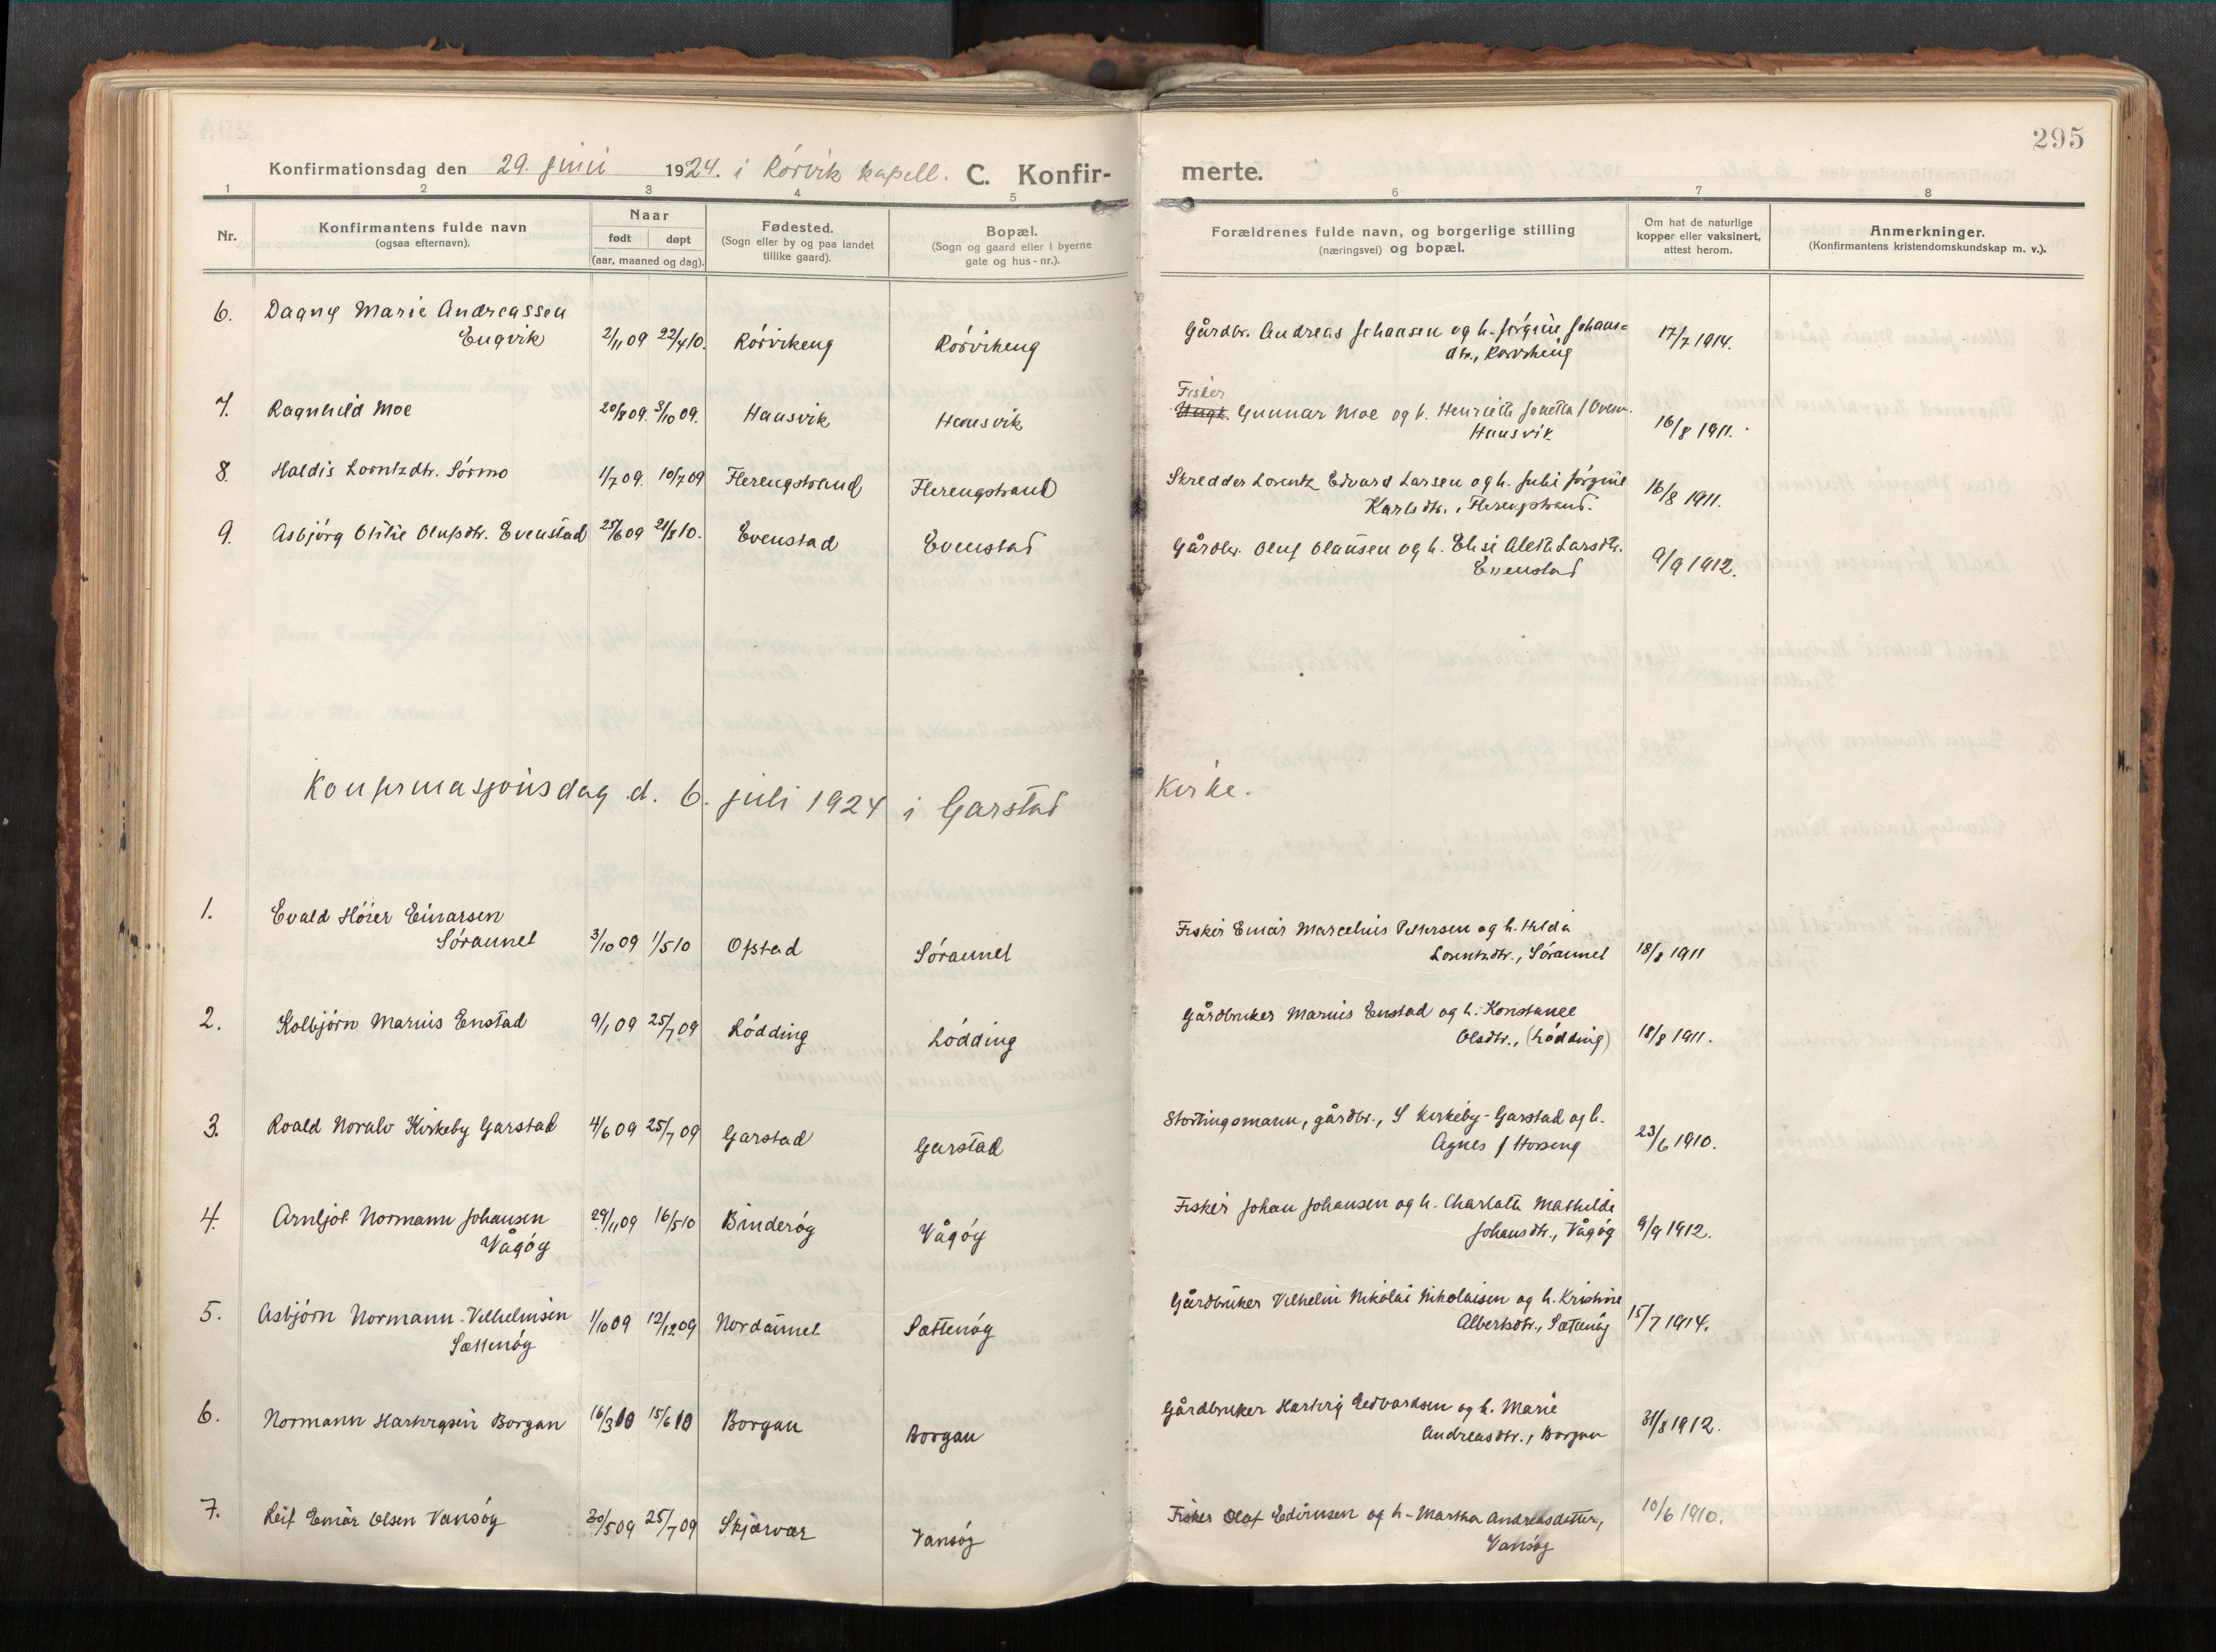 295
Konfirmationsdag den 29. juni 1924. i Rørvik kapell. C. Konfirmerte.
1 2 3 4 5 6 7 8
Nr.
Konfirmantens fulde navn
(ogsaa efternavn).
Naar
født døpt
(aar, maaned og dag).
Fødested.
(Sogn eller by og paa landet
tillike gaard).
Bopæl.
(Sogn og gaard eller i byerne
gate og hus-nr.).
Forældrenes fulde navn, og borgerlige stilling
(næringsvei) og bopæl.
Om hat de naturlige
kopper eller vaksinert,
attest herom.
Anmerkninger.
(Konfirmantens kristendomskundskap m. v.).
6. Dagny Marie Andreassen
Engvik 2/11 09 22/4 10. Rørvikeng Rørvikeng
Gårdbr. Andreas Johansen og h. Jørgine Johans=
dtr., Rørvikeng 17/7 1914.
7. Ragnhild Moe 20/8 09. 3/10 09. Hausvik Hausvik
Fisker
Gunnar Moe og h. Henriette Jonetta f
Hausvik 16/8 1911.
8. Haldis Lorntzdtr. Sørmo 1/7 09. 10/7 09 Flerengstrand Flerengstrand
Skredder Lorentz Edvard Larsen og h. Julie Jørgine
Karlsdtr., Flerengstrand. 16/8 1911.
9. Asbjørg Otilie Olufsdtr. Evenstad 25/6 09 21/8 10. Evenstad Evenstad
Gårdbr. Oluf Olausen og h. Elise Aleth Larsdtr.
Evenstad 9/9 1912.
Konfirmasjonsdag d. 6. juli 1924 i Garstad Kirke.
1. Evald Høier Einarsen
Søraunet 3/10 09 1/5 10 Ofstad Søraunet
Fisker Einar Marcelius Pettersen og h. Hilda
Lorentzdtr., Søraunet 18/8 1911
2. Kolbjørn Marius Enstad 9/1 09 25/7 09 Lødding Lødding
Gårdbruker Marius Enstad og h. Konstanse
Olsdtr., (Lødding) 18/8 1911.
3. Roald Noralv Kirkeby Garstad 4/6 09 25/7 09 Garstad Garstad
Stortingsmann, gårdbr., S Kirkeby-Garstad og h.
Agnes f Horseng 23/6 1910.
4. Arnljot Normann Johansen
Vågøy 29/11 09 16/5 10 Binderøy Vågøy
Fisker Johan Johansen og h. Charlotte Mathilde
Johansdtr., Vågøy 9/9 1912.
5. Asbjørn Normann Vilhelmsen
Sættenøy 1/10 09 12/12 09 Nordaunet Sættenøy
Gårdbruker Vilhelm Nikolai Nikolaisen og h. Kristine
Albertsdtr., Sættenøy 15/7 1914.
6. Normann Hartvigsen Borgan 16/3 10 15/6 10 Borgan Borgan
Gårdbruker Hartvig Edvardsen og h. Marie
Andreasdtr., Borgan 31/8 1912.
7. Leif Einar Olsen Vansøy 30/5 09 25/7 09 Skjærvær Vansøy
Fisker Olaf Edvinsen og h- Martha Andreasdatter,
Vansøy 10/6 1910.